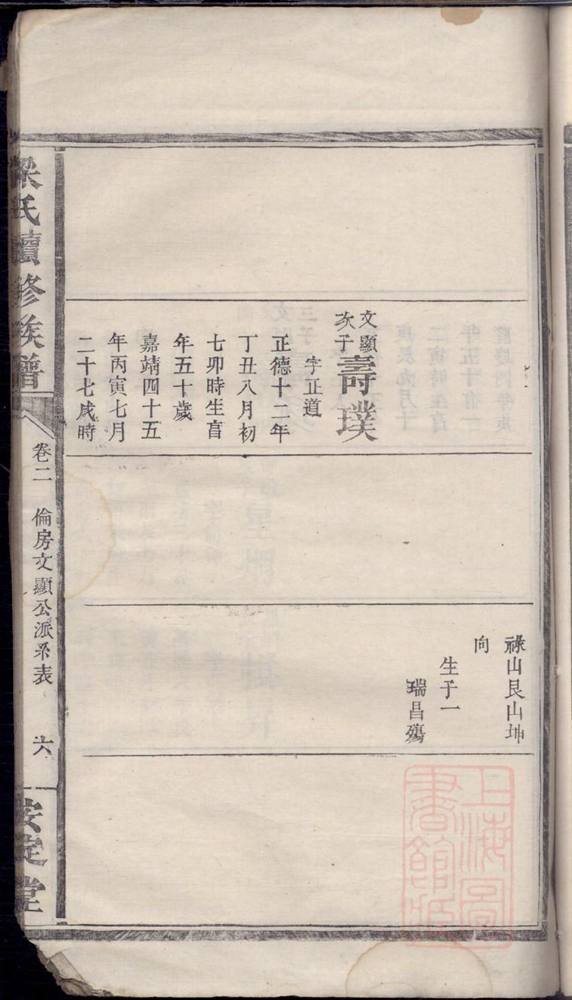 文顯
次子
壽璞
字正道
正德十二年
丁丑八月初
七卯時生享
年五十歲
嘉靖四十五
年丙寅七月
二十七戌時
祿山艮山坤
向
生子一
瑞昌殤
梁氏續修族譜
卷二
倫房文顯公派系表
六
安定堂
上海圖
書館藏